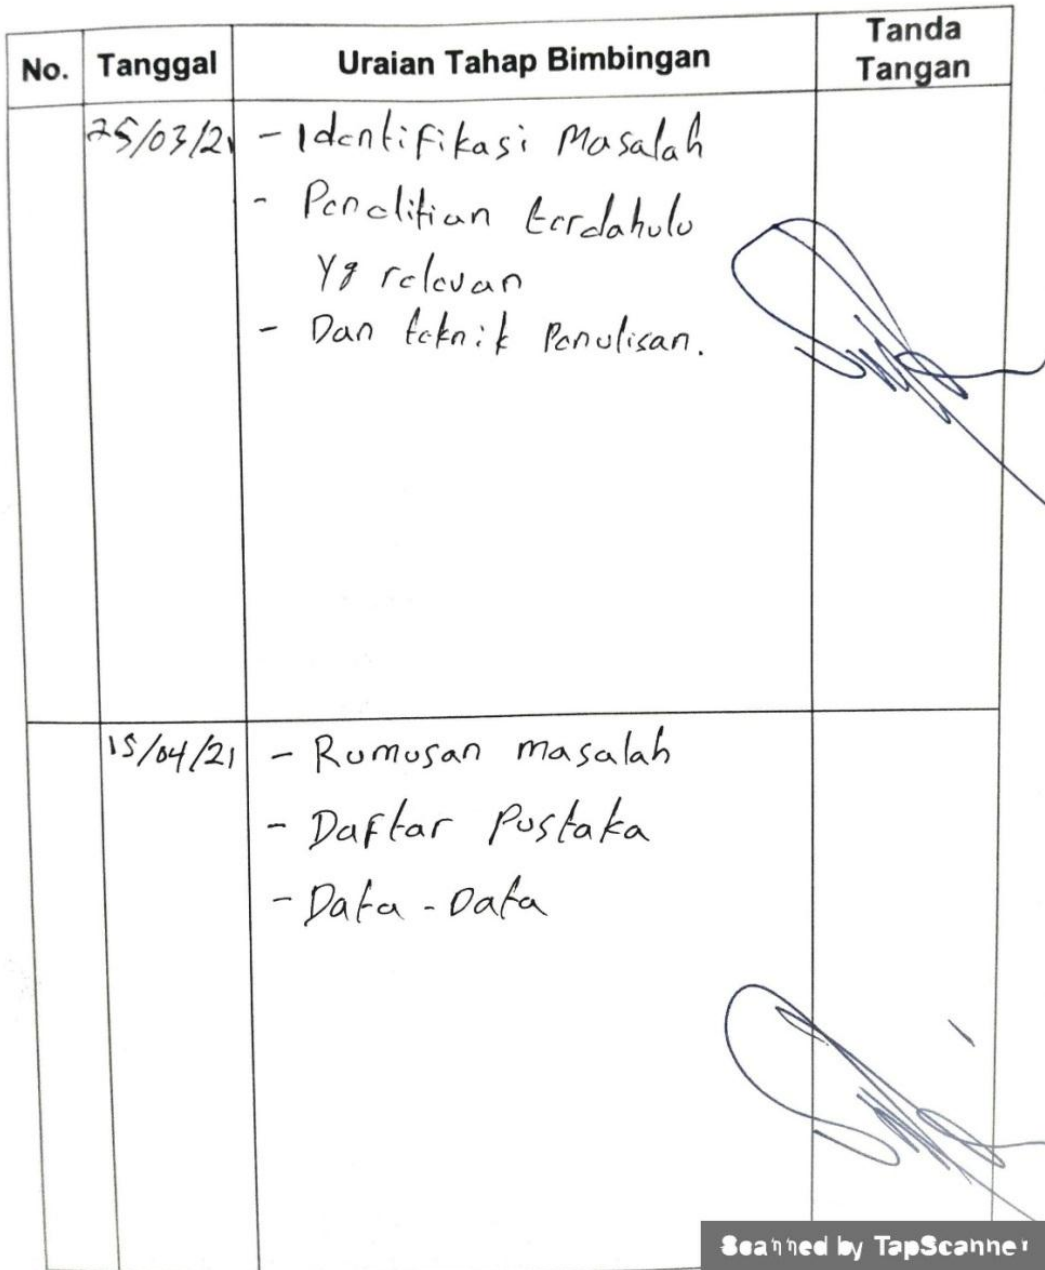 No. Tanggal Uraian Tahap Bimbingan Tanda Tangan
25/03/21 - Identifikasi Masalah
- Penelitian terdahulu
Yg relevan
- Dan teknik Penulisan.
15/04/21 - Rumusan masalah
- Daftar Pustaka
- Data - Data
Scanned by TapScanner